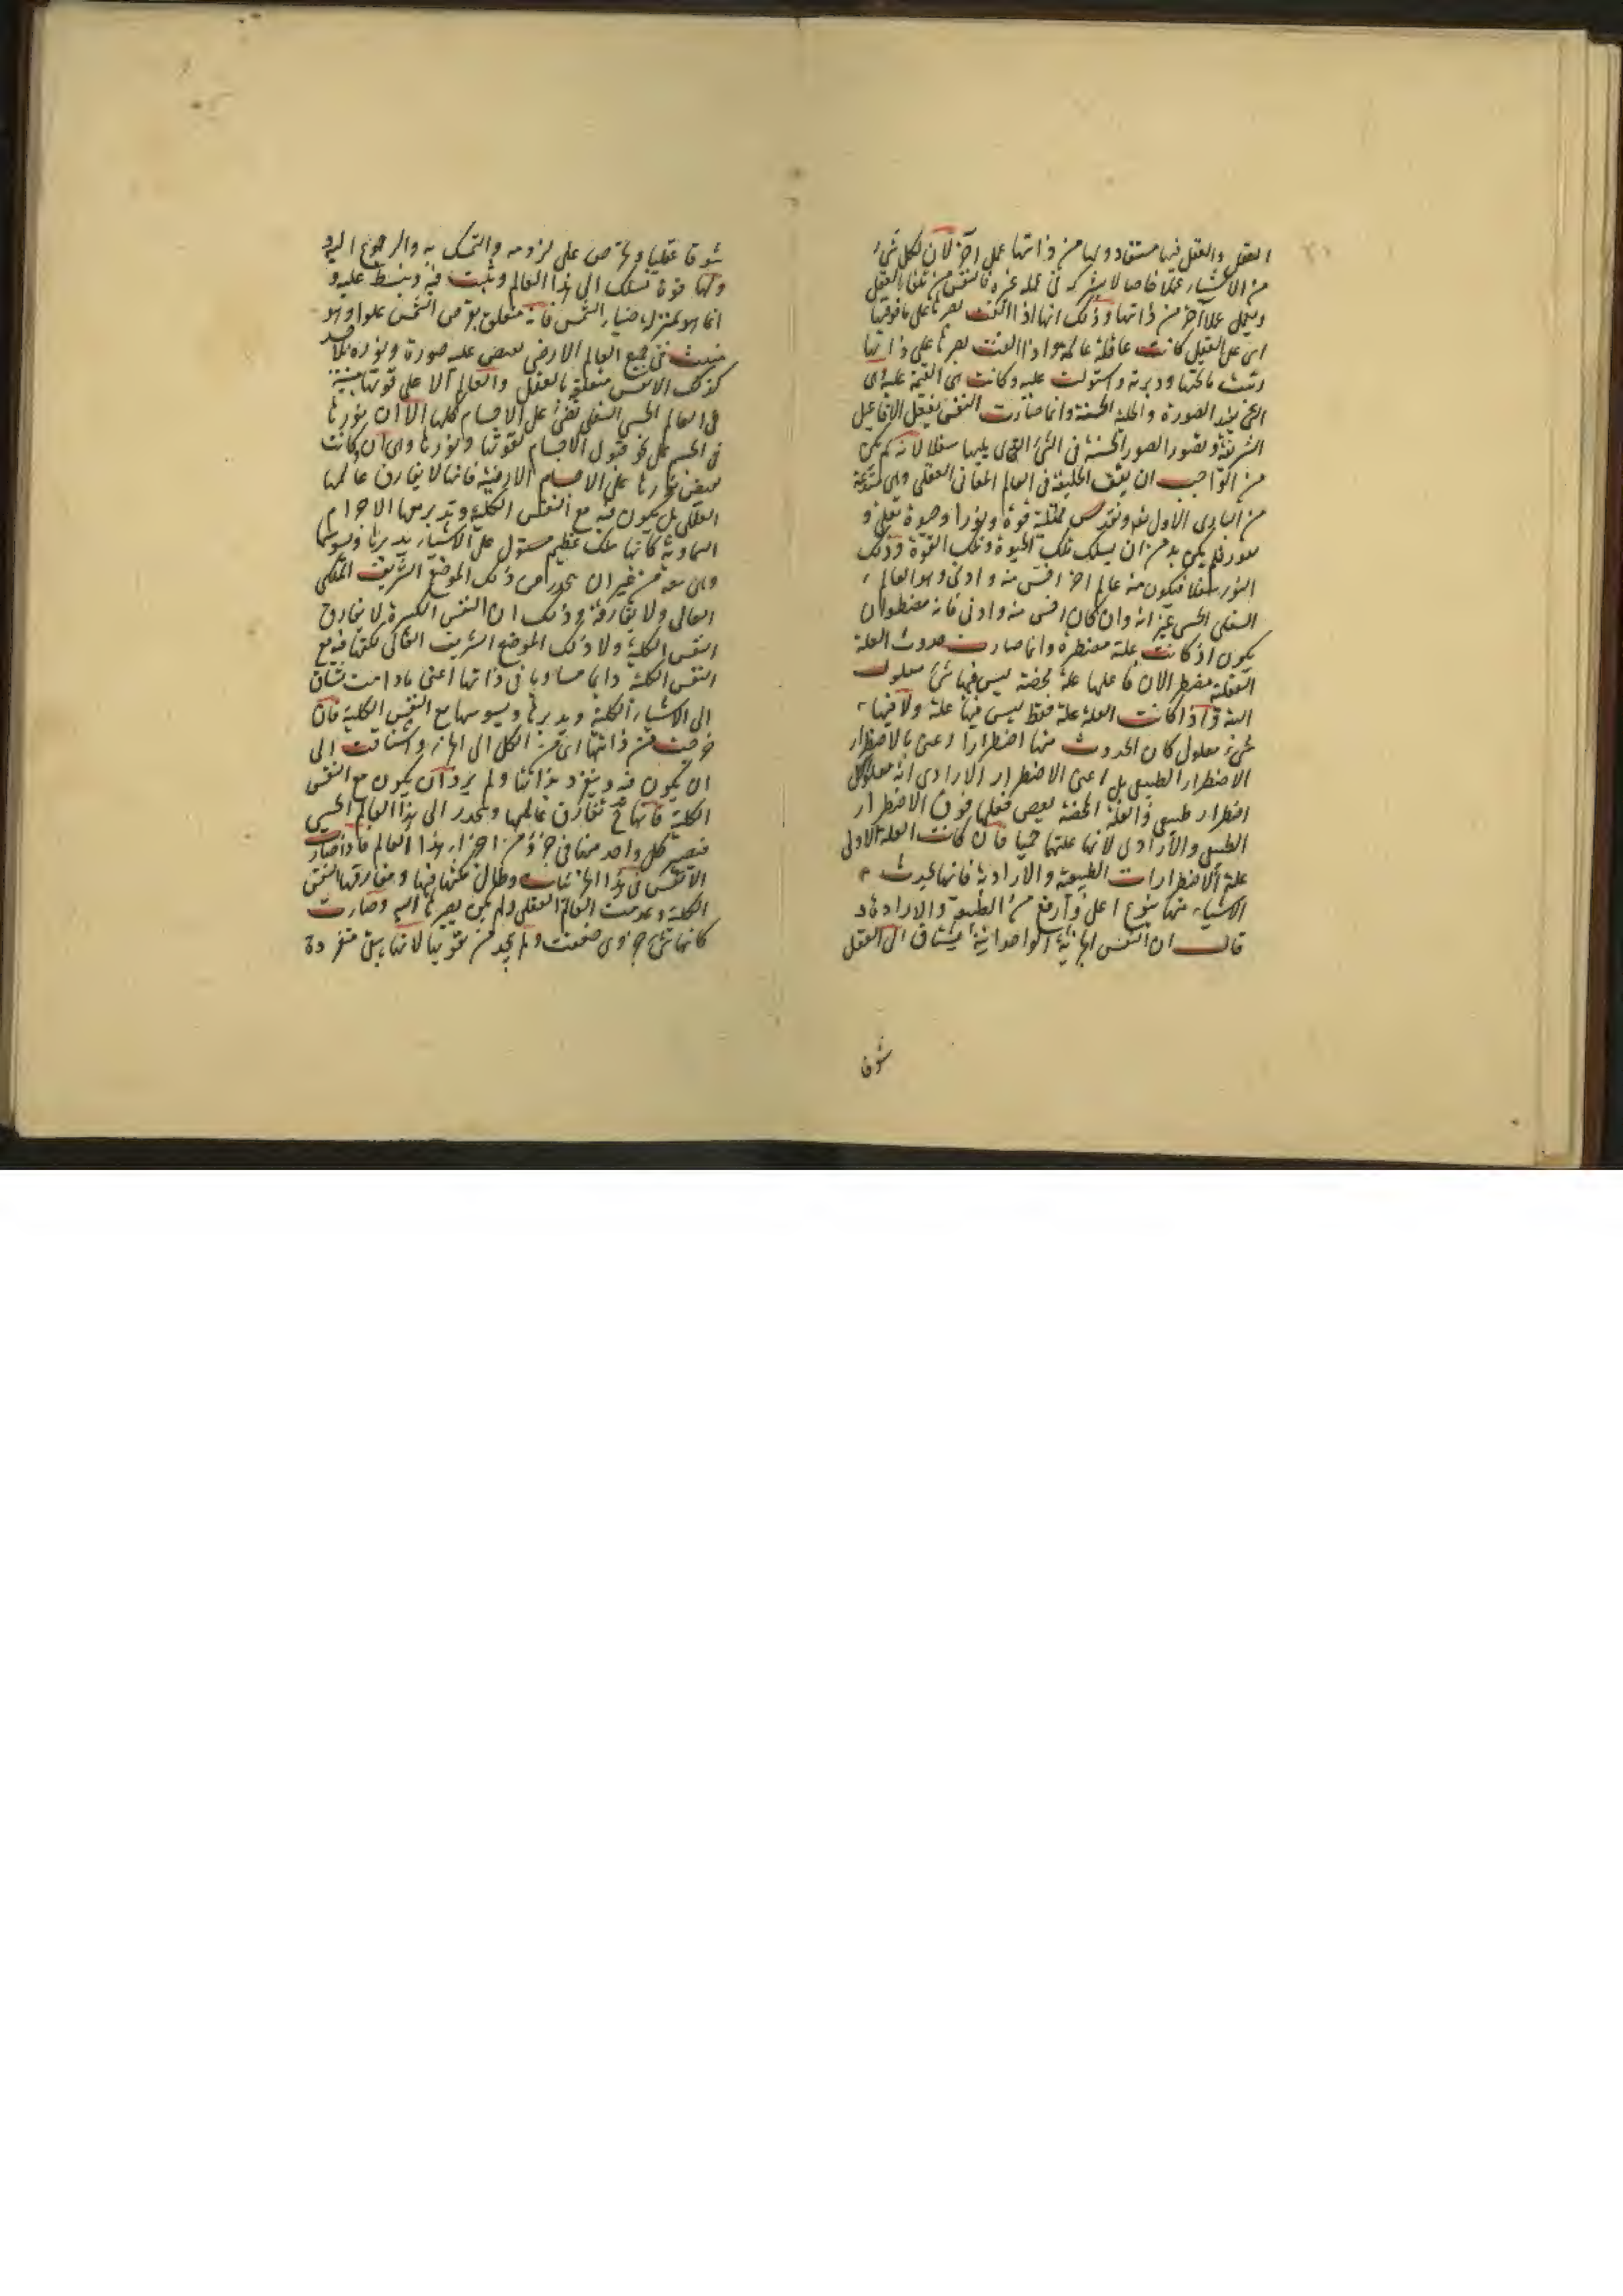 العقل والعقل فيها مستفاد ولها من ذاتها عمل آخر لان لكل شيء
من الاشياء عملا خاصا لا يشركه في عمله غيره فالنفس من تلقاء العقل
ويعمل عملا آخر من ذاتها وذلك انها اذا القت بصرها على ما فوقها
اى على العقل كانت عاقلة عالمة واذا القت بصرها على ذاتها
ودبرته واستولت عليه وكانت هى القيمة عليه اى
الصورة والحلية الحسنة وانما صارت النفس تفعل الافاعيل
الشريفة وتصور الصور الحسنة في الشئ الذى يليها سفلا لانه لم يكن
من الواجب ان يقف الخليقة في العالم العقلى وهى
من البادى الاول قوة ونورا وحيوة
فلم يكن بد من ان يسلك تلك الحيوة وتلك القوة وذلك
النور سفلا فيكون منه عالم اخر اخس منه وادنى وهو العالم
السفلى الحسى غير انه وان كان اخس منه وادنى فانه مضطر ان
يكون اذ كانت علته مضطرة وانما صارت حدوث العلة
العقلية مضطر لان فاعلها علة محضة ليس فيها شئ معلول
البتة واذا كانت العلة علة فقط ليس فيها علة ولا فيها
شىء معلول كان الحدوث منها اضطرارا اعنى بالاضطرار
الاضطرار الطبيعى بل اعنى الاضطرار الارادى
اضطرار طبيعى والعلة المحضة فعلها فوق الاضطرار
الطبيعى والارادى لانها علتها جميعا فان كانت العلة الاولى
علة الاضطرارات الطبيعية والارادية فانها تحدث
الاشياء منها بنوع اعلى وارفع من الطبيعة والارادة
قال ان النفس الجزئية الواحدانية يشتاق الى العقل
شوقا
شوقا عقليا وتحرص على لزومه والتمسك به والرجوع اليه
ولها قوة تسلك الى هذا العالم وتثبت فيه وينبسط عليه و
انما هو بمنزلة ضياء الشمس فانه متعلق بقرص الشمس علوا وهو
منبث في جميع العالم الارضى يفيض عليه صورة ونوره
كذلك الانفس متعلقة بالعقل والعالم الاعلى
في العالم الحسى السفلى تضئ على الاجسام كلها الا ان نورها
في الجسم على نحو قبول الاجسام لقوتها ونورها وهى ان كانت
يفيض نورها على الاجسام الارضية فانها لا يفارق عالمها
العقلى بل يكون فيه مع النفس الكلية وتدبر معها الاجرام
السماوية كانها ملك عظيم مستول على الاشياء يدبرها ويسوسها
وهى معه من غير ان ينحدر من ذلك الموضع الشريف الملكى
العالى ولا يفارقه وذلك ان النفس الكثيرة لا يفارق
النفس الكلية ولا ذلك الموضع الشريف العالى لكنها فيه مع
النفس الكلية دايما مساويا في ذاتها اعنى مادامت تشتاق
الى الاشياء الكلية ويدبرها ويسوسها مع النفس الكلية فان
خرجت من ذاتها اى من الكل الى الجزء واشتاقت الى
ان يكون فيه وينفرد بذاتها ولم يرد ان يكون مع النفس
الكلية فانها ح تفارق عالمها وينحدر الى هذا العالم الحسى
فيصير كل واحد منها في جزؤ من اجزاء هذا العالم فاذا صارت
الانفس في هذا الجزئيات وطال مكثها فيها ومفارقتها النفس
الكلية وعدمت العالم العقلى ولم يكن بصرها اليه وصارت
كانها شئ جزوى ضعفت ولم يجد من يقويها لانها يبقى منفردة